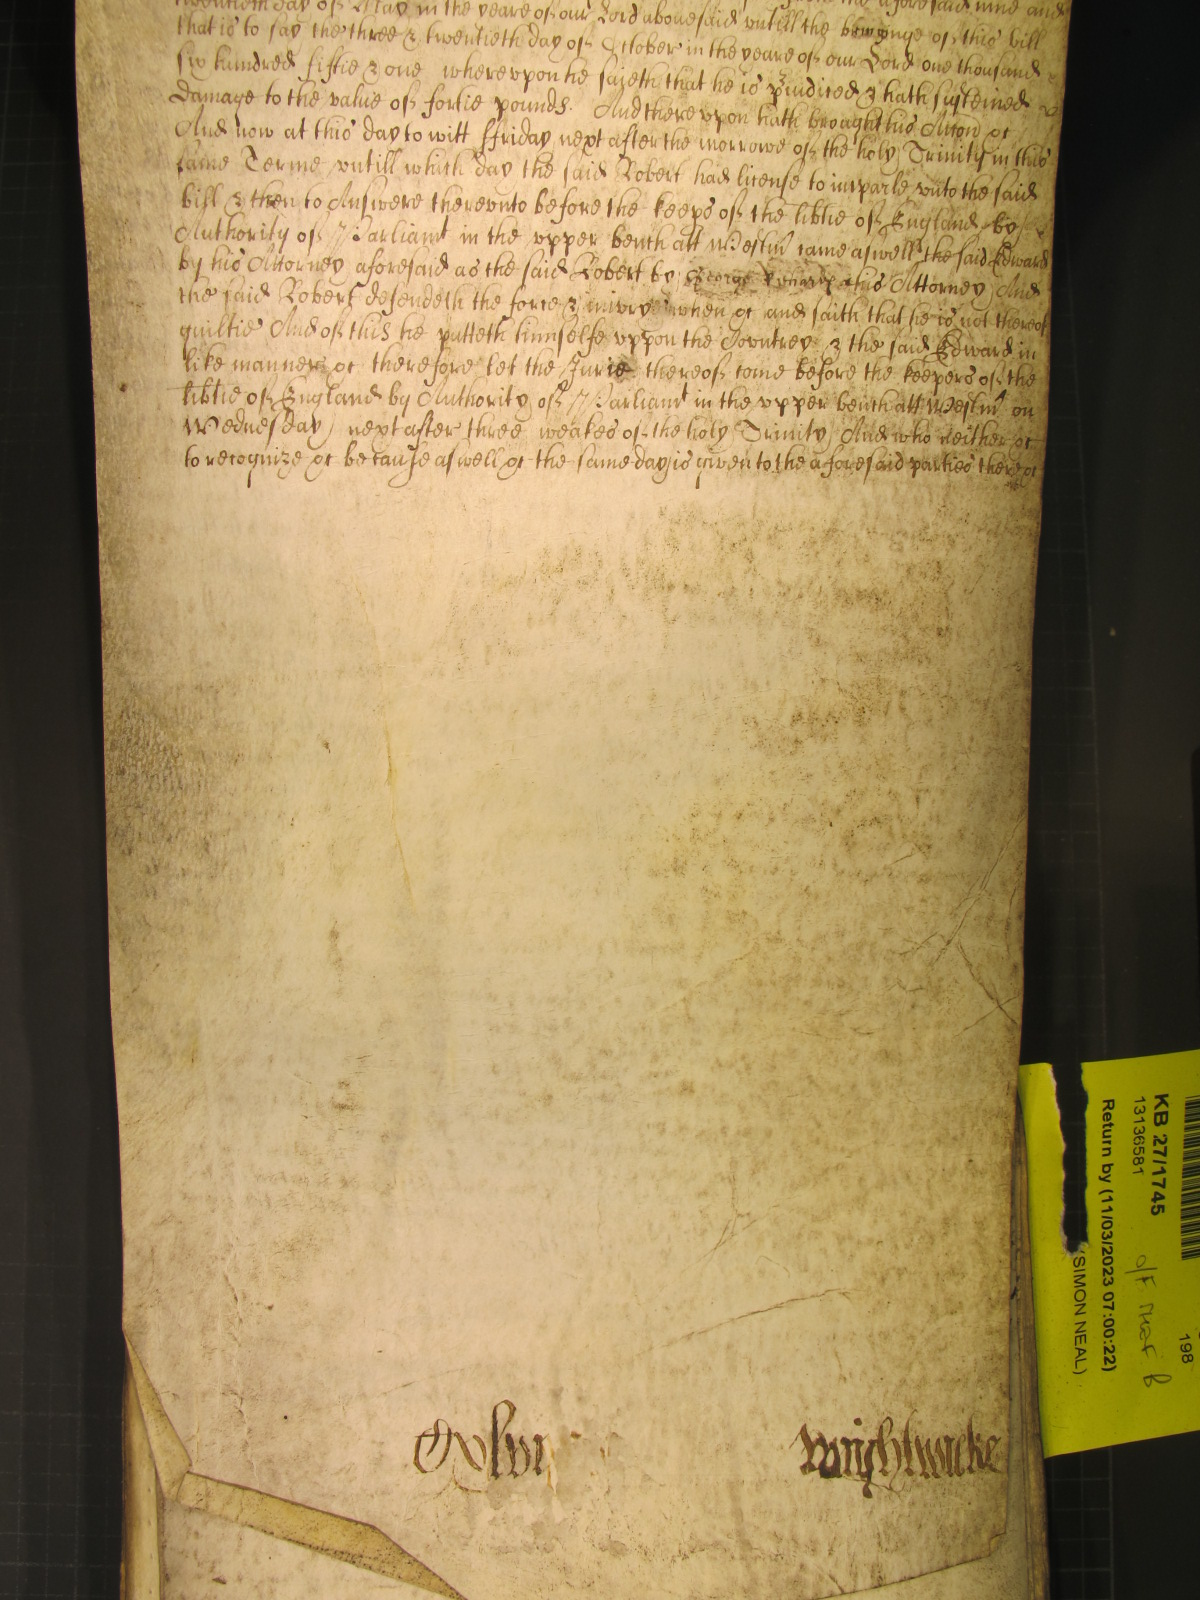 twentieth day of May in the yeare of our Lord abovesaid untill the bringinge of this bill
that is to say the three & twentieth day of October in the yeare of our Lord one thousand
six hundred fiftie & one whereupon he sayeth that he is p'iudiced & hath susteined
damage to the value of fortie pounds. And thereupon hath brought his Accon &c
And now at this day to witt ffriday next after the morrowe of the holy Trinity in this
same Terme untill which day the said Robert had license to imparle unto the said
bill & then to Answere thereunto before the keeps of the libtie of England by
Authority of Parliamt in the upper bench att Westm came aswell the said Edward
by his Attorney aforesaid as the said Robert by George his Attorney And
the said Robert defendeth the force & iniury when &c and saith that he is not thereof
guiltie And of this he putteth himselfe uppon the Countrey & the said Edward in
like manner &c therefore let the Jurie thereof come before the keepers of the
libtie of England by Authority of Parliamt in the upper bench att Westm on
Wednesday next after three weakes of the holy Trinity And who neither &c
to recognize &c because aswell &c the same day is given to the aforesaid parties there &c
Wightwicke
KB 27/1745
13136581
Return by (11/03/2023 07:00:22)
(SIMON NEAL)
198